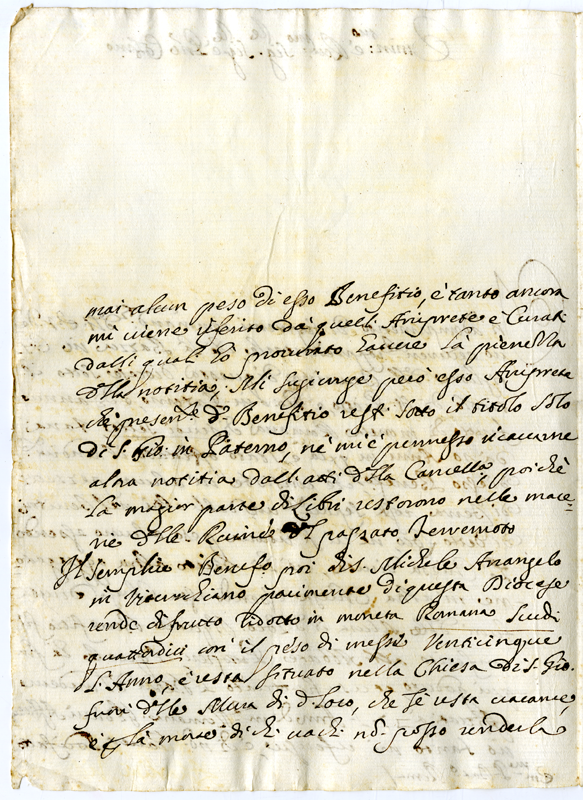 mai alcun peso di esso Benefitio, è tanto ancora
mi viene riferito da quelli Arciprete e Curati
dalli quali hò procurato havere la pienezza
dlla notitia, Mi sugiunge però esso Arciprete
che presen.te d.o Benefitio rest. sotto il titolo solo
di S. Gio. in Paterno, nè mi è permesso ricavarne
altra notitia dall'atti dlla Cancella, poichè
la magior parte di Libri restorono nelle mace=
rie dlle Ruine dl passato Terremoto
Il semplice Benef.o poi di S. Michele Arcangelo
in parimente di questa Diocese
rende di frutto ridotto in moneta Romana Scudi
quattordici con il peso di messe Venticinque
l'Anno, è resta situato nella Chiesa di S. Gio.
fuori dlle Mura di d.o Loco, che se resta vacante,
è la morte di chi vachi nō posso renderla